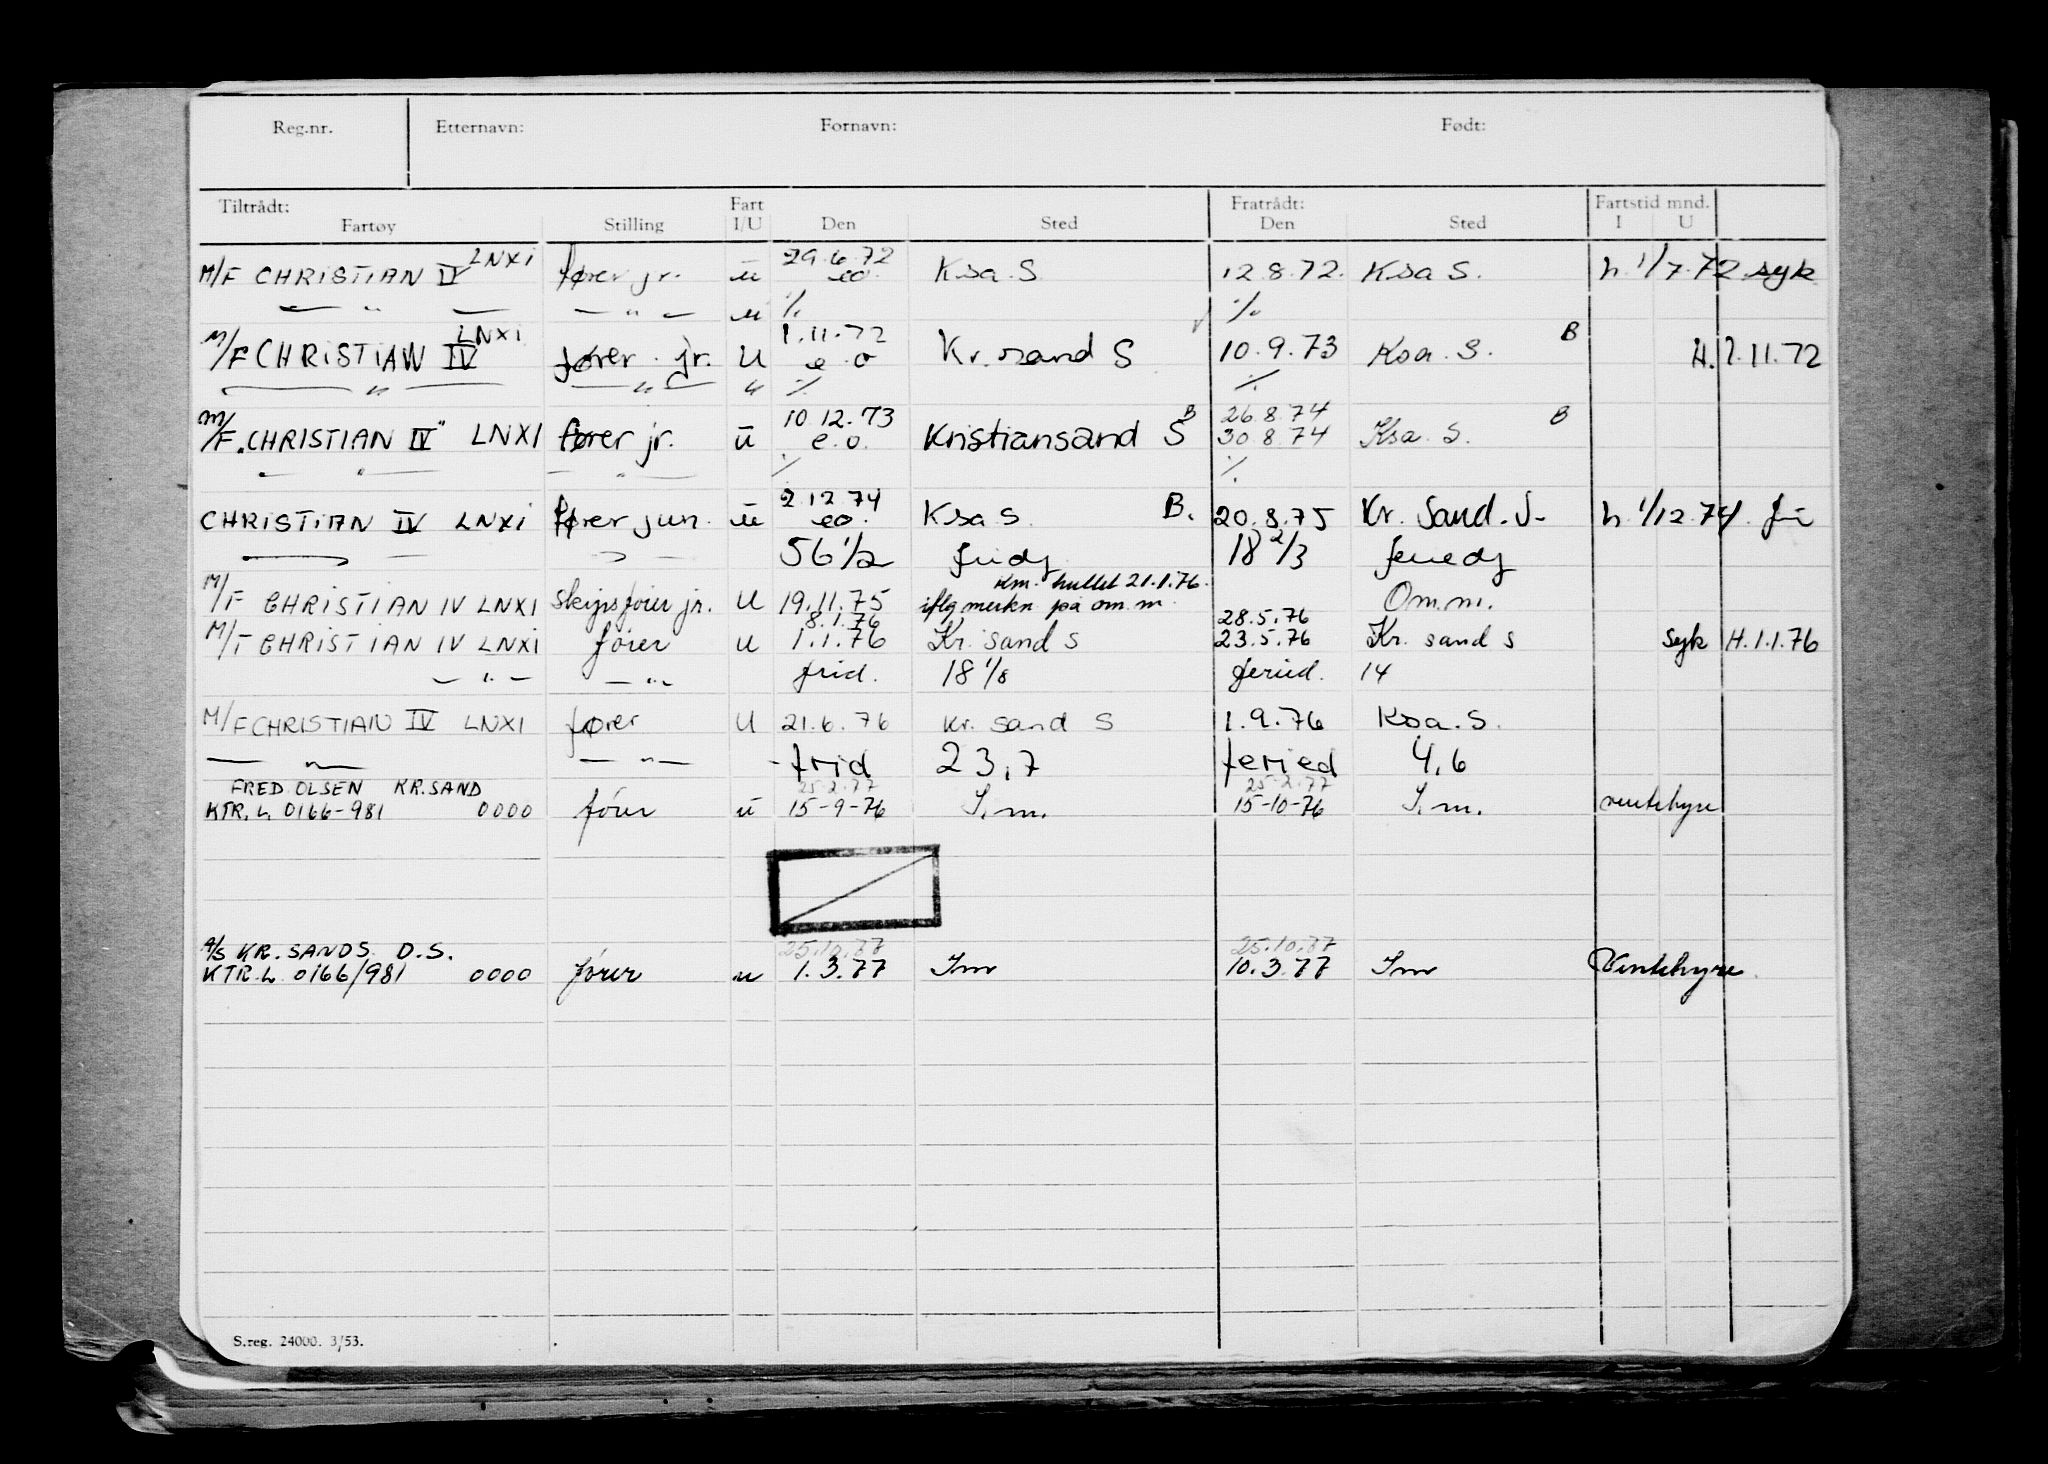 Reg.nr. Etternavn: Fornavn: Født:
Tiltrådt: Fart Fratrådt: Fartstid mnd.
Fartøy Stilling I/U Den Sted Den Sted I U
LNXI 29.6.72
M/F CHRISTIAN IV fører jr. u eo. Ksa S 12.8.72. Ksa S. h. 1/7.72 syk
— " — — " — u ·/. ·/.
LNXI 1.11.72 B
M/F CHRISTIAN IV fører jr. U e.o Kr.sand S 10.9.73 Ksa. S. H. 1.11.72
— " — — " — " ·/. ·/.
10.12.73 B 26.8.74 B
M/F. CHRISTIAN IV" LNXI fører jr. u e.o. Kristiansand S 30.8.74 Ksa. S.
— " — — " — ·/. ·/.
2.12.74
CHRISTIAN IV LNXI fører jun. u eo. Ksa S. B. 20.8.75 Kr. Sand. S- h. 1/12.74.
56 1/2 18 2/3
Km. hullet 21.1.76.
M/F CHRISTIAN IV LNXI Skipsfører jr. U 19.11.75 iflg merkn på om.m. Om.m.
8.1.76 28.5.76
M/F CHRISTIAN IV LNXI fører u 1.1.76 Kr. sand s 23.5.76 Kr. sand s syk H.1.1.76
— " — — " — frid. 18 1/8 feried. 14
M/F CHRISTIAN IV LNXI fører U 21.6.76 Kr. sand S 1.9.76 Ksa. S.
— " — — " — frid 23,7 feried 4,6
FRED OLSEN KR.SAND 25-2-77 25-2-77
KTR.L. 0166-981 0000 fører u 15-9-76 I.m. 15-10-76 I.m. ventehyre
A/S KR.SANDS D.S. 25.10.77 25.10.77
KTR.L 0166/981 0000 fører u 1.3.77 Im 10.3.77 Im Ventehyre
S.reg. 24000. 3/53.